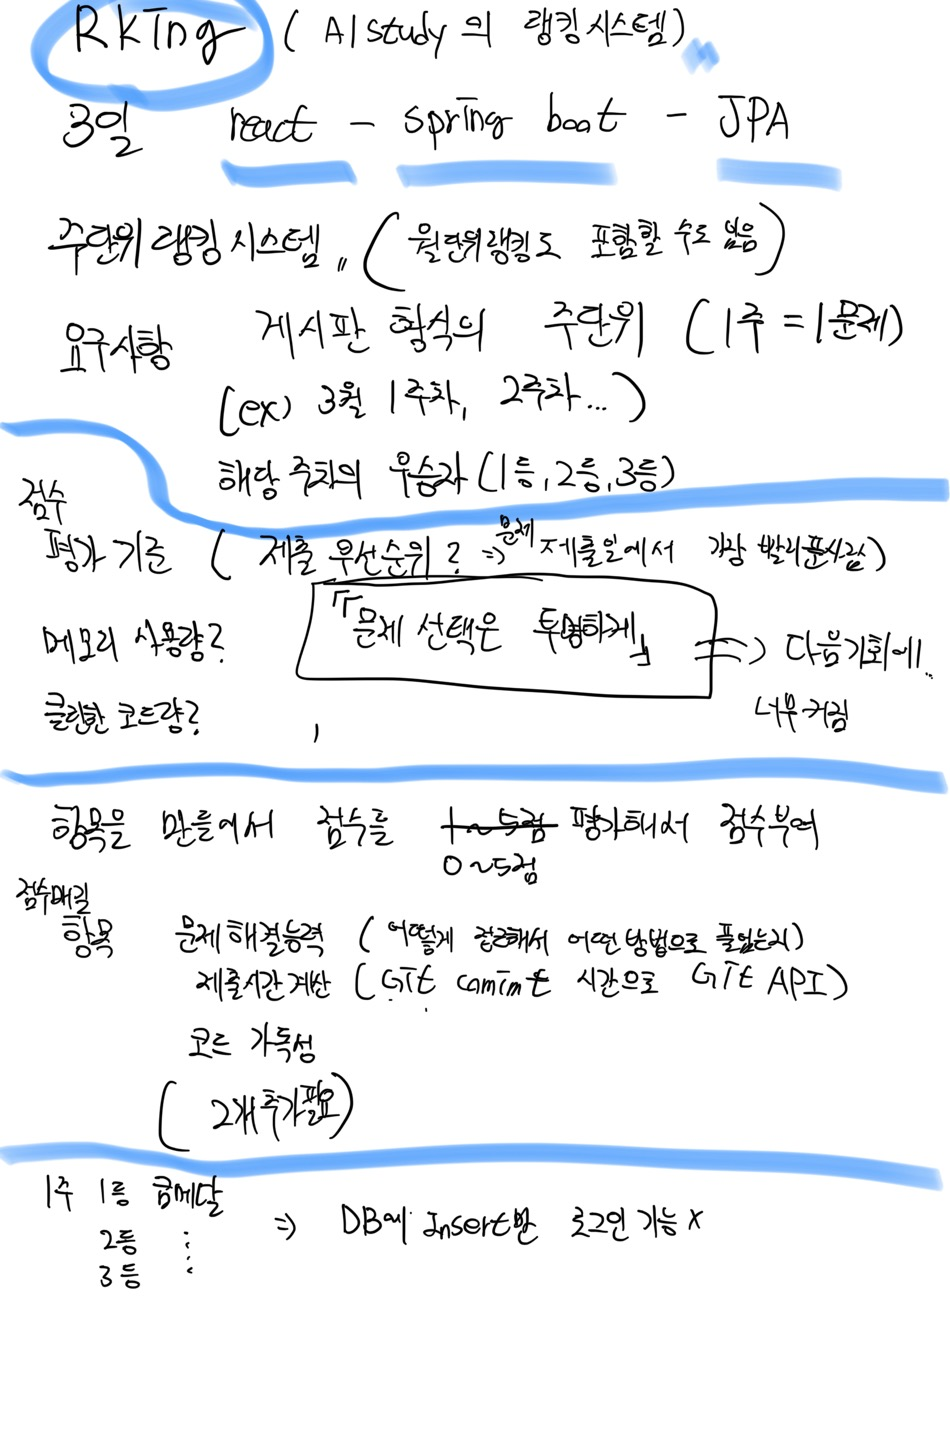 RKing ( AI study 의 랭킹시스템)
3일 react - spring boot - JPA
주단위 랭킹 시스템 (월단위랭킹도 포함할 수도 있음)
요구사항 게시판 형식의 주단위 (1주 = 1문제)
(ex) 3월 1주차, 2주차...)
해당 주차의 우승자 (1등, 2등, 3등)
점수
평가 기준 ( 제출 우선순위? => 문제 제출일에서 가장 빨리푼사람)
메모리 사용량? 『문제 선택은 투명하게』 => 다음기회에..
클린한 코드량? 너무커짐
항목을 만들어서 점수를 1~5점 평가해서 점수부여
0~5점
점수매길
항목 문제해결능력 (어떻게 접근해서 어떤 방법으로 풀었는지)
제출시간계산 (Git commit 시간으로 Git API)
코드 가독성
( 2개추가필요)
1주 1등 금메달
2등 : => DB에 Insert만 로그인 기능 x
3등 :